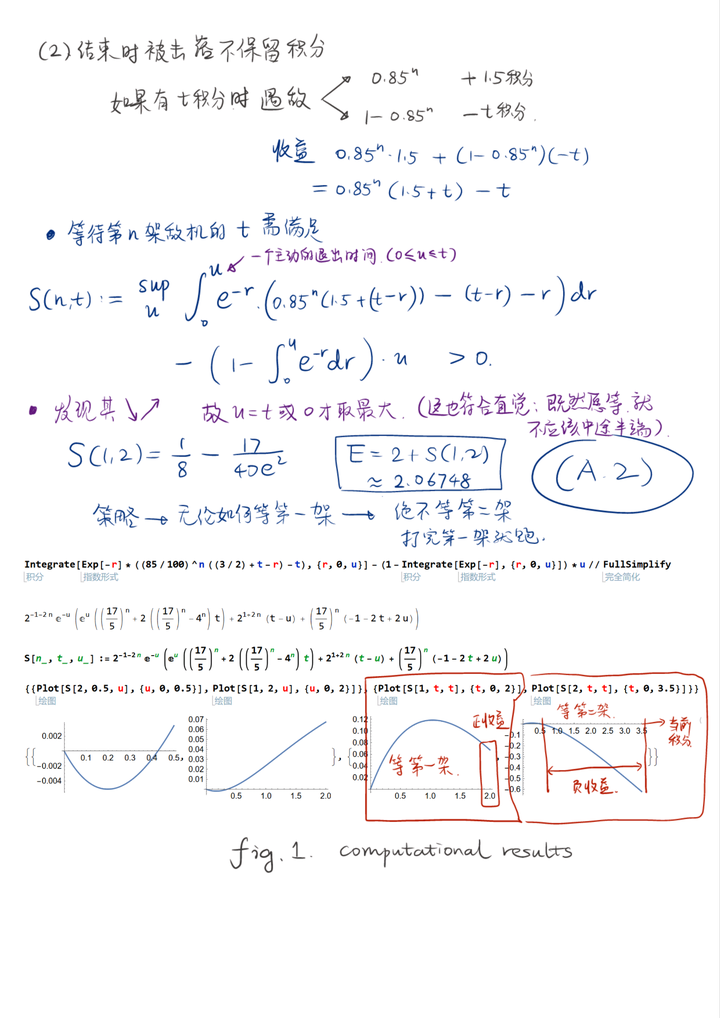 (2) 结束时被击落不保留积分
如果有 t 积分时 遇敌
0.85ⁿ +1.5积分
1-0.85ⁿ -t积分.
收益 0.85ⁿ·1.5 + (1-0.85ⁿ)(-t)
= 0.85ⁿ(1.5+t) - t
• 等待第n架敌机的 t 需满足
一个主动的退出时间.(0≤u≤t)
S(n,t) := sup_u ∫₀ᵘ e⁻ʳ·(0.85ⁿ(1.5+(t-r)) - (t-r) - r)dr
- (1-∫₀ᵘe⁻ʳdr)·u >0.
• 发现其↘↗ 故 u=t 或 0 才取最大. (这也符合直觉:既然愿等,就
不应该中途半端).
S(1,2) = 1/8 - 17/(40e²)
E = 2+S(1,2)
≈ 2.06748
(A.2)
策略 → 无论如何等第一架 → 绝不等第二架
打完第一架就跑.
Integrate[Exp[-r] * ((85 / 100) ^ n ((3 / 2) + t - r) - t), {r, 0, u}] - (1 - Integrate[Exp[-r], {r, 0, u}]) * u // FullSimplify
积分 指数形式 积分 指数形式 完全简化
2^(-1-2n) e^(-u) (e^u ((17/5)ⁿ + 2 ((17/5)ⁿ - 4ⁿ) t) + 2^(1+2n) (t - u) + (17/5)ⁿ (-1 - 2 t + 2 u))
S[n_, t_, u_] := 2^(-1-2n) e^(-u) (e^u ((17/5)ⁿ + 2 ((17/5)ⁿ - 4ⁿ) t) + 2^(1+2n) (t - u) + (17/5)ⁿ (-1 - 2 t + 2 u))
{{Plot[S[2, 0.5, u], {u, 0, 0.5}], Plot[S[1, 2, u], {u, 0, 2}]}, {Plot[S[1, t, t], {t, 0, 2}], Plot[S[2, t, t], {t, 0, 3.5}]}}
绘图 绘图 绘图 绘图
0.002
-0.002
-0.004
0.1 0.2 0.3 0.4 0.5
0.07
0.06
0.05
0.04
0.03
0.02
0.01
0.5 1.0 1.5 2.0
0.12
0.10
0.08
0.06
0.04
0.02
0.5 1.0 1.5 2.0
正收益
等第一架.
等第二架.
0.5 1.0 1.5 2.0 2.5 3.0 3.5
-0.1
-0.2
-0.3
-0.4
-0.5
-0.6
负收益.
当前
积分
fig. 1. computational results